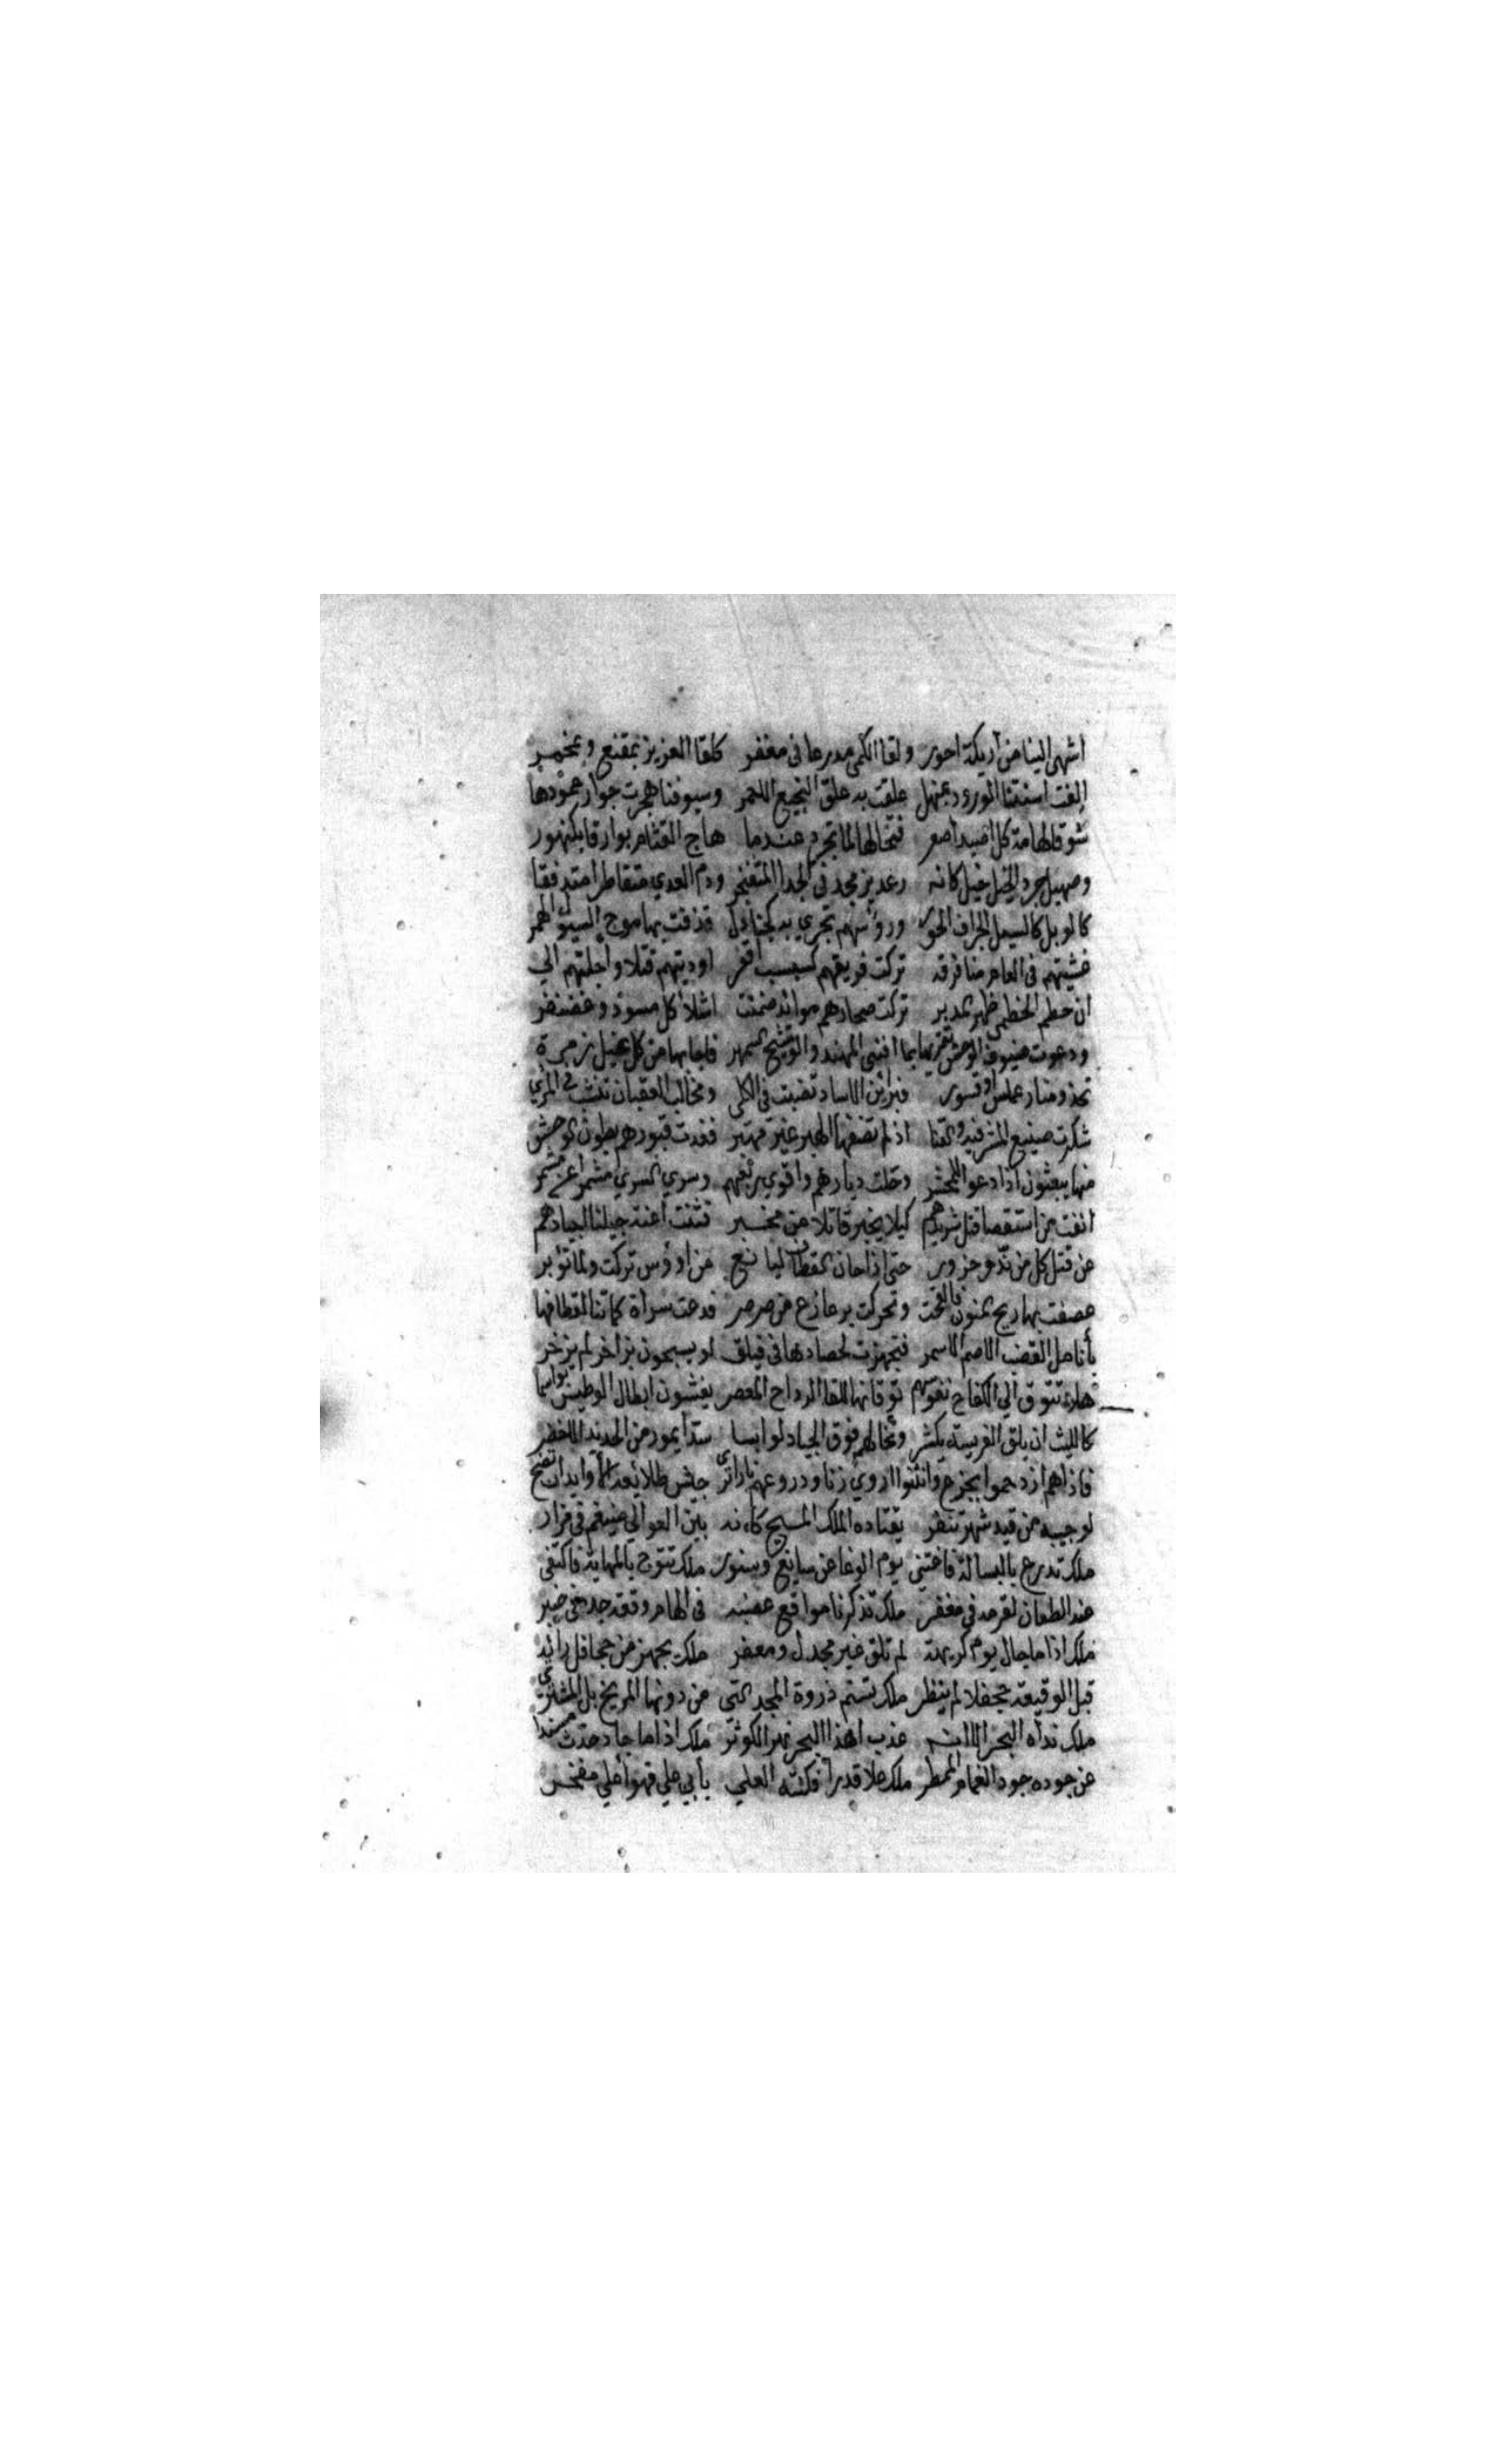 اشهى الينا من اريكة احور ولقا الكمي مدرعا في مغفر كلقا العزيز بمقنع وبمخمر
الفت اسنتنا الورود بمنهل علقت به علق النجيع الاحمر وسيوفنا هجرت جوار غمودها
شوقا لهامة كل اصيد اصعر فتخالها لما تجرد عندما هاج القتام بوارقا بكنهور
وصهيل جرد الخيل خيل كانه رعد يزمجر في الجدا المتفجر ودم العدي متقاطرا متدفقا
كالوبل كالسيل الجراف الحور ورؤسهم تجري به كجنادل قذفت بها موج السيول الهمر
غشيتهم في العام منا فرقه تركت فريقهم كسبسب اقفر اوديتهم قتلا واجلتهم الي
ان حطم الخطمي ظهر المدبر تركت صحارهم موائد ضمنت اشلا كل مسود وغضنفر
ودعوت ضيوف الوحش تقريها بما افنى المهند والوشيج السمهر فاجابها من كل غيل زمرة
تحذو منار عملس او قسور فبراثن الاساد تضبث في الكلى ومخالب العقبان تنشب في المري
شكرت صنيع المشرفيه والقنا اذ لم تضفها الهبر غير مهبر فغدت قبورهم بطون الوحش
منها يبعثون اذا دعوا للمحشر وخلت ديارهم واقوي ربعهم وسري السري مشمرا عن مشمر
انفت من استقصا قتل شريدهم كيلا يخبر قائلا من مخبر فثنت اعنة خيلنا اجيادهم
عن قتل كل من ندو حزور حتى اذا حان القطاف ليانع من ارؤس تركت ولما تؤبر
عصفت بها ريح المنون فالقحت وتحركت بزعازع من صرصر فدعت سراة كماتنا لقطافها
بأنامل القضب الاصم الاسمر فتجهزت لحصادها في فيلق لو يسبحون بزاخر لم يزخر
هلوء تتوق الي الكفاح نفوسهم توقانها للقا الرداح المعصر يغشون ابطال الوطيس بواسما
كالليث ان يلق الفريسة يكشر وتخالهم فوق الجياد لوابسا سدا يمور من الحديد الاخضر
فاذا هم ازدحموا بجزع وانثنوا اروي زنا ودروعهم نارا تري جيش طلايعه الاوابد ان تضح
لوجيبه من قيد شهر تنفر يقتاده الملك المسيح كانه بين العوالي ضيغم في مزار
ملك تدرع بالبسالة فاغتنى يوم الوغا عن سابغ وسنور ملك تتوج بالمهابة فاكتفى
عند الطعان لقرمه في مغفر ملك تذكرنا مواقع عضبه في الهام وقعة جده في خيبر
ملك اذا ما جال يوم كريهة لم تلق غير مجدل ومعفر ملك يجهز من جحافل رائه
قبل الوقيعة جحفلا لم ينظر ملك تسنم ذروة المجد التي من دونها المريخ بل المشتري
ملك نداه البحر الا انه عذب اهذا البحر نهر الكوثر ملك اذا ما جاد حدث مسندا
عن جوده جود الغمام الممطر ملك علا قدرا فكنته العلي بأبي علي فهو اعلي مفخر